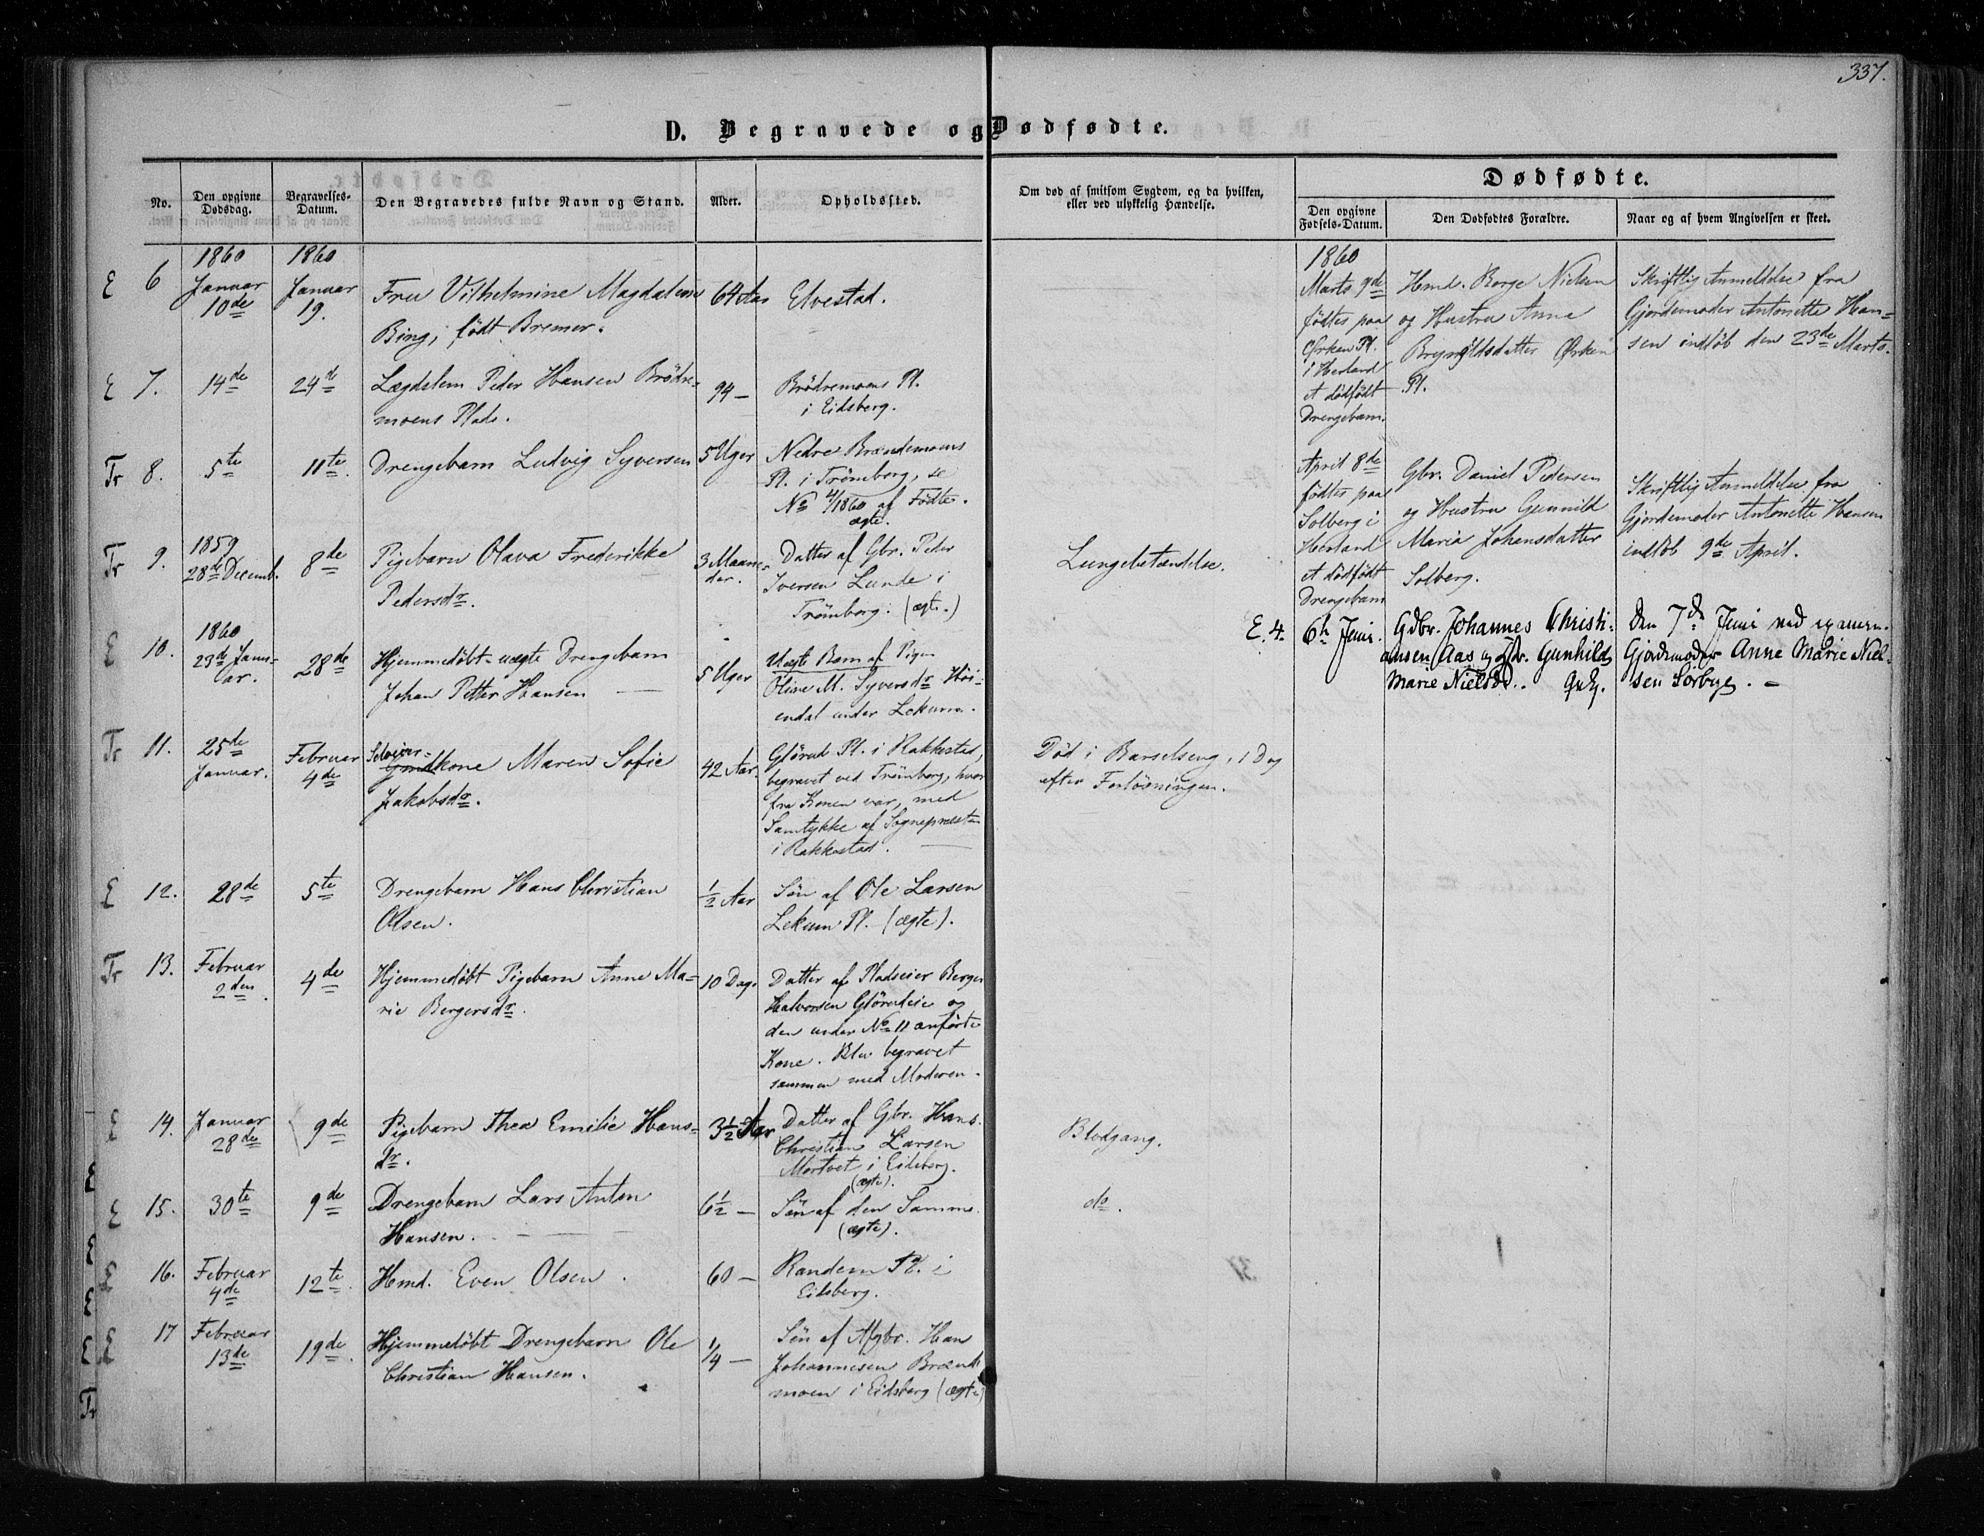 337.
D. Begravede og Dødfødte.
No.
Den opgivne Dødsdag.
Begravelses-Datum.
Den Begravedes fulde Navn og Stand.
Alder.
Opholdssted.
Om død af smitsom Sygdom, og da hvilken,
eller ved ulykkelig Hændelse.
Dødfødte.
Den opgivne Fødsels-Datum.
Den Dødfødtes Forældre.
Naar og af hvem Angivelsen er skeet.
1860 1860
E 6 Januar 10de Januar 19. Fru Vilhelmine Magdalene 64 Aar Elvestad.
Bing, født Bremer.
E 7. 14de 24de Lægdelem Peder Hansen Brödre- 94 — Brödremoens Pl.
moens Plads. i Eidsberg.
Tr 8. 5te 11te Drengebarn Ludvig Syversen 5 Uger Nedre Brandemoens
Pl. i Trömborg, se
No 4/1860 af Födte.
ægte.
Tr 9. 1859 28de Decemb. 8de Pigebarn Olava Frederikke 3 Maane- Datter af Gbr. Peder Lungebetændelse.
Pedersdr. der. Iversen Lunde i
Trömborg. (ægte.)
E 10. 1860 23de Janu- 28de Hjemmedøbt uægte Drengebarn 5 Uger Uægte Barn af Pigen
ar. Johan Petter Hansen — Olive M. Syversdr. Höi-
endal under Lekum.
Tr 11. 25de Januar. Februar 4de Selveier-
Gmdkone Maren Sofie 42 Aar. Glörud Pl. i Rakkestad, Död i Barselseng, 1 Dag
Jakobsdr. begravet ved Trömborg, hvor efter Forlösningen.
fra Konen var, med
Samtykke af Sognepresten
i Rakkestad. —
E 12. 28de 5te Drengebarn Hans Christian ½ Aar Sön af Ole Larsen
Olsen. Lekum Pl. (ægte).
Tr 13. Februar 2den 4de Hjemmedøbt Pigebarn Anne Ma- 10 Dage Datter af Pladseier Berger
rie Bergersdr. Halvorsen Glörudeie og
den under No 11 anførte
Kone. Blev begravet
sammen med Moderen.
E 14. Januar 28de 9de Pigebarn Thea Emilie Hans- 3½ Aar Datter af Gbr. Hans Blodgang.
dr. Christian Larsen
Mortvet i Eidsberg.
(ægte).
E 15. 30te 9de Drengebarn Lars Anton 6½ — Sön af den Samme. do.
Hansen. (ægte).
16. Februar 4de 12te Hmd. Even Olsen. 60 — Randem Pl. i
Eidsberg.
E 17 Februar 13de 19de Hjemmedøbt Drengebarn Ole ¼ — Sön af Afgbr. Han
Christian Hansen. Johannesen
moen i Eidsberg (ægte)
1860
Marts 9de
fødtes paa
Ørken Pl.
i Herland
et dödfödt
Drengebarn.
Hmd. Borge Nielsen
og Hustru Anna
Brynildsdatter Ørken
Pl.
Skriftlig Anmeldelse fra
Gjordemoder Antonette Han-
sen indløb den 23de Marts.
April 8de
fødtes paa
Solberg i
Herland
et dödfödt
Drengebarn
Gbr. Daniel Pedersen
og Hustru Gunnild
Maria Johansdatter
Solberg.
Skriftlig Anmeldelse fra
Gjordemoder Antonette Hansen
indløb 9de April.
E. 4. 6te Juni.
Gdbr. Johannes Christi-
ansen Aas og Gunhild
Marie Nielsd.
Den 7de Juni ved
Gjordemoder Anne Marie Niel-
sen Sorbye. —
E
E
E
E
Tr